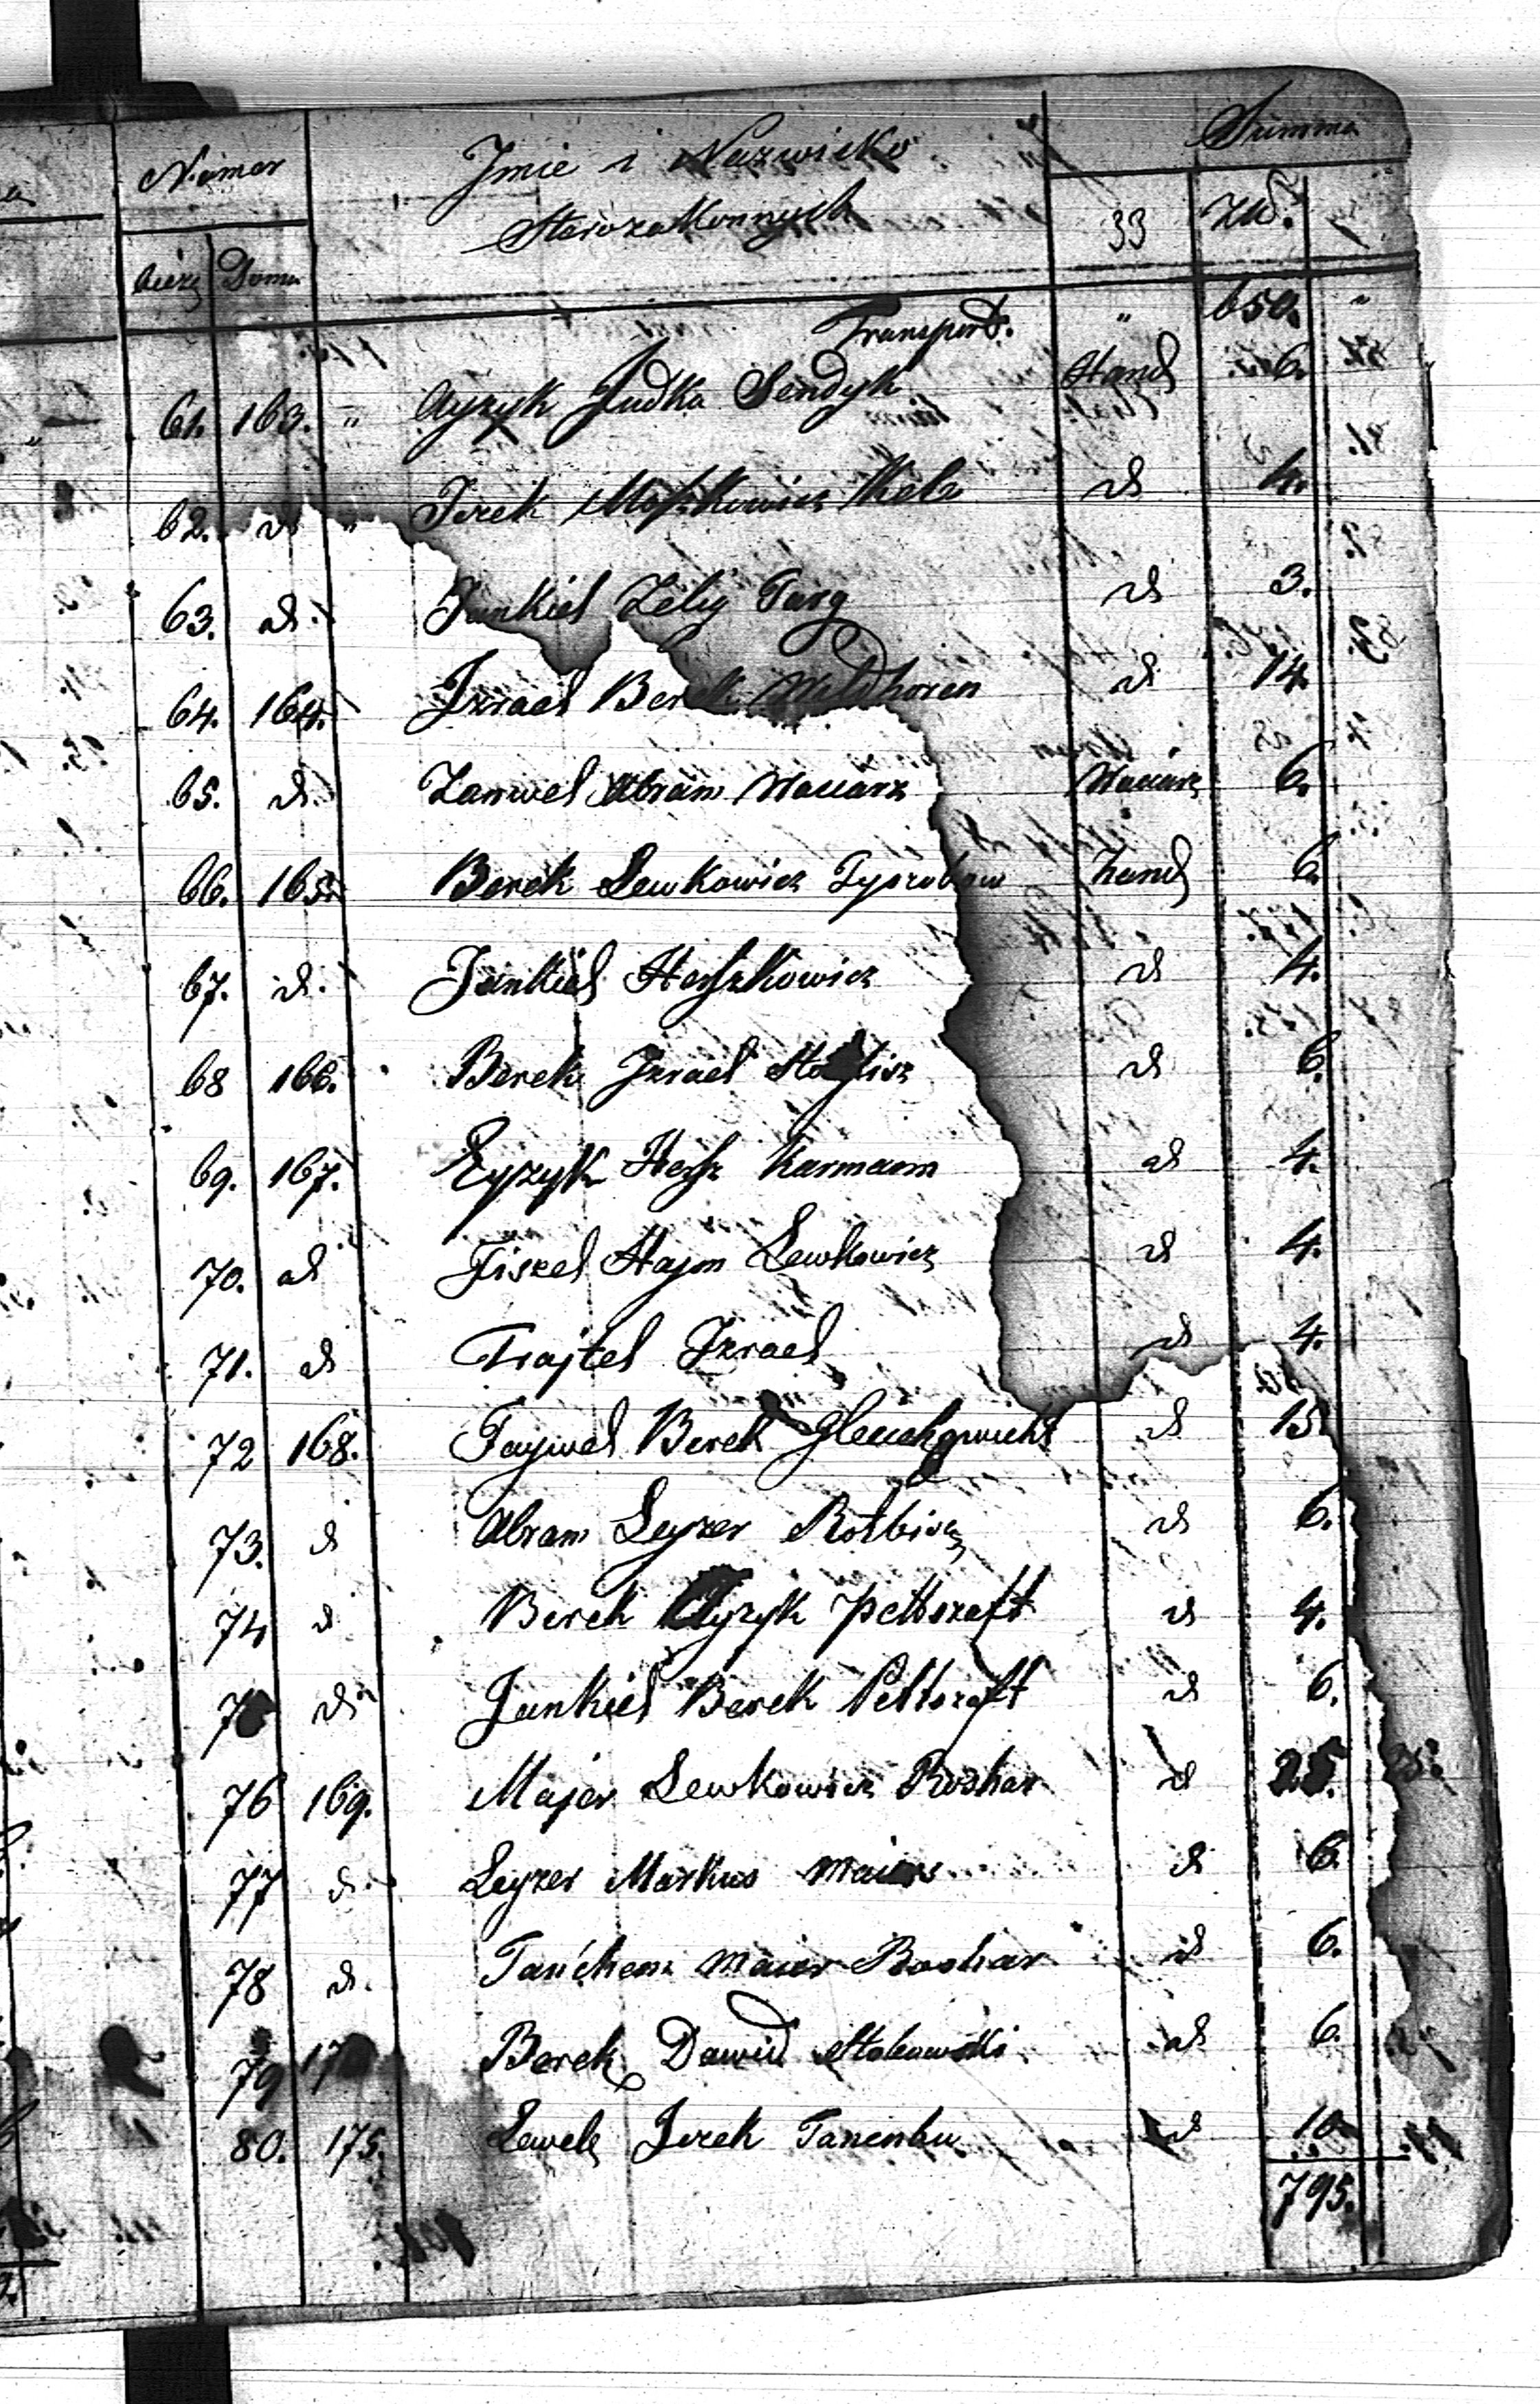 Numer Imie i Nazwisko Summa
Starozakonnych 33 Złp.
bieżą Domu
Transport. " 650. "
61. 163. " Ayzyk Judka Sendyk Hand 6.
62. d " Icek Moszkowicz Kelz d 4.
63. d. Jankiel Zelig Targ d 3.
64. 164. Izrael Berek Weldhoren d 14.
65. d. Zanwel Abram Waciarz Waciarz 6.
66. 165. Berek Lewkowicz hand 6.
67. d. Jankiel Herszkowicz d 4.
68 166. Berek Izrael d 6.
69. 167. Eyzyk Hersz Karmaam d 4.
70. d Fiszel Hajm Lewkowicz d 4.
71. d Trajtel Izrael d 4.
72 168. Faywel Berek Gleichgwicht d 15
73. d Abram Leyzer Rotbisz d 6.
74 d Berek Ayzyk Peltszaft d 4.
75 d Jankiel Berek Peltszaft d 6.
76 169. Majer Lewkowicz Boshar d 25.
77 d. Leyzer Markus Maier d 6.
78 d. Tanchem Maier Boshar d 6.
79 17 Berek Dawid d 6.
80. 175. Lewek Icek Tanenbu d 10
795.